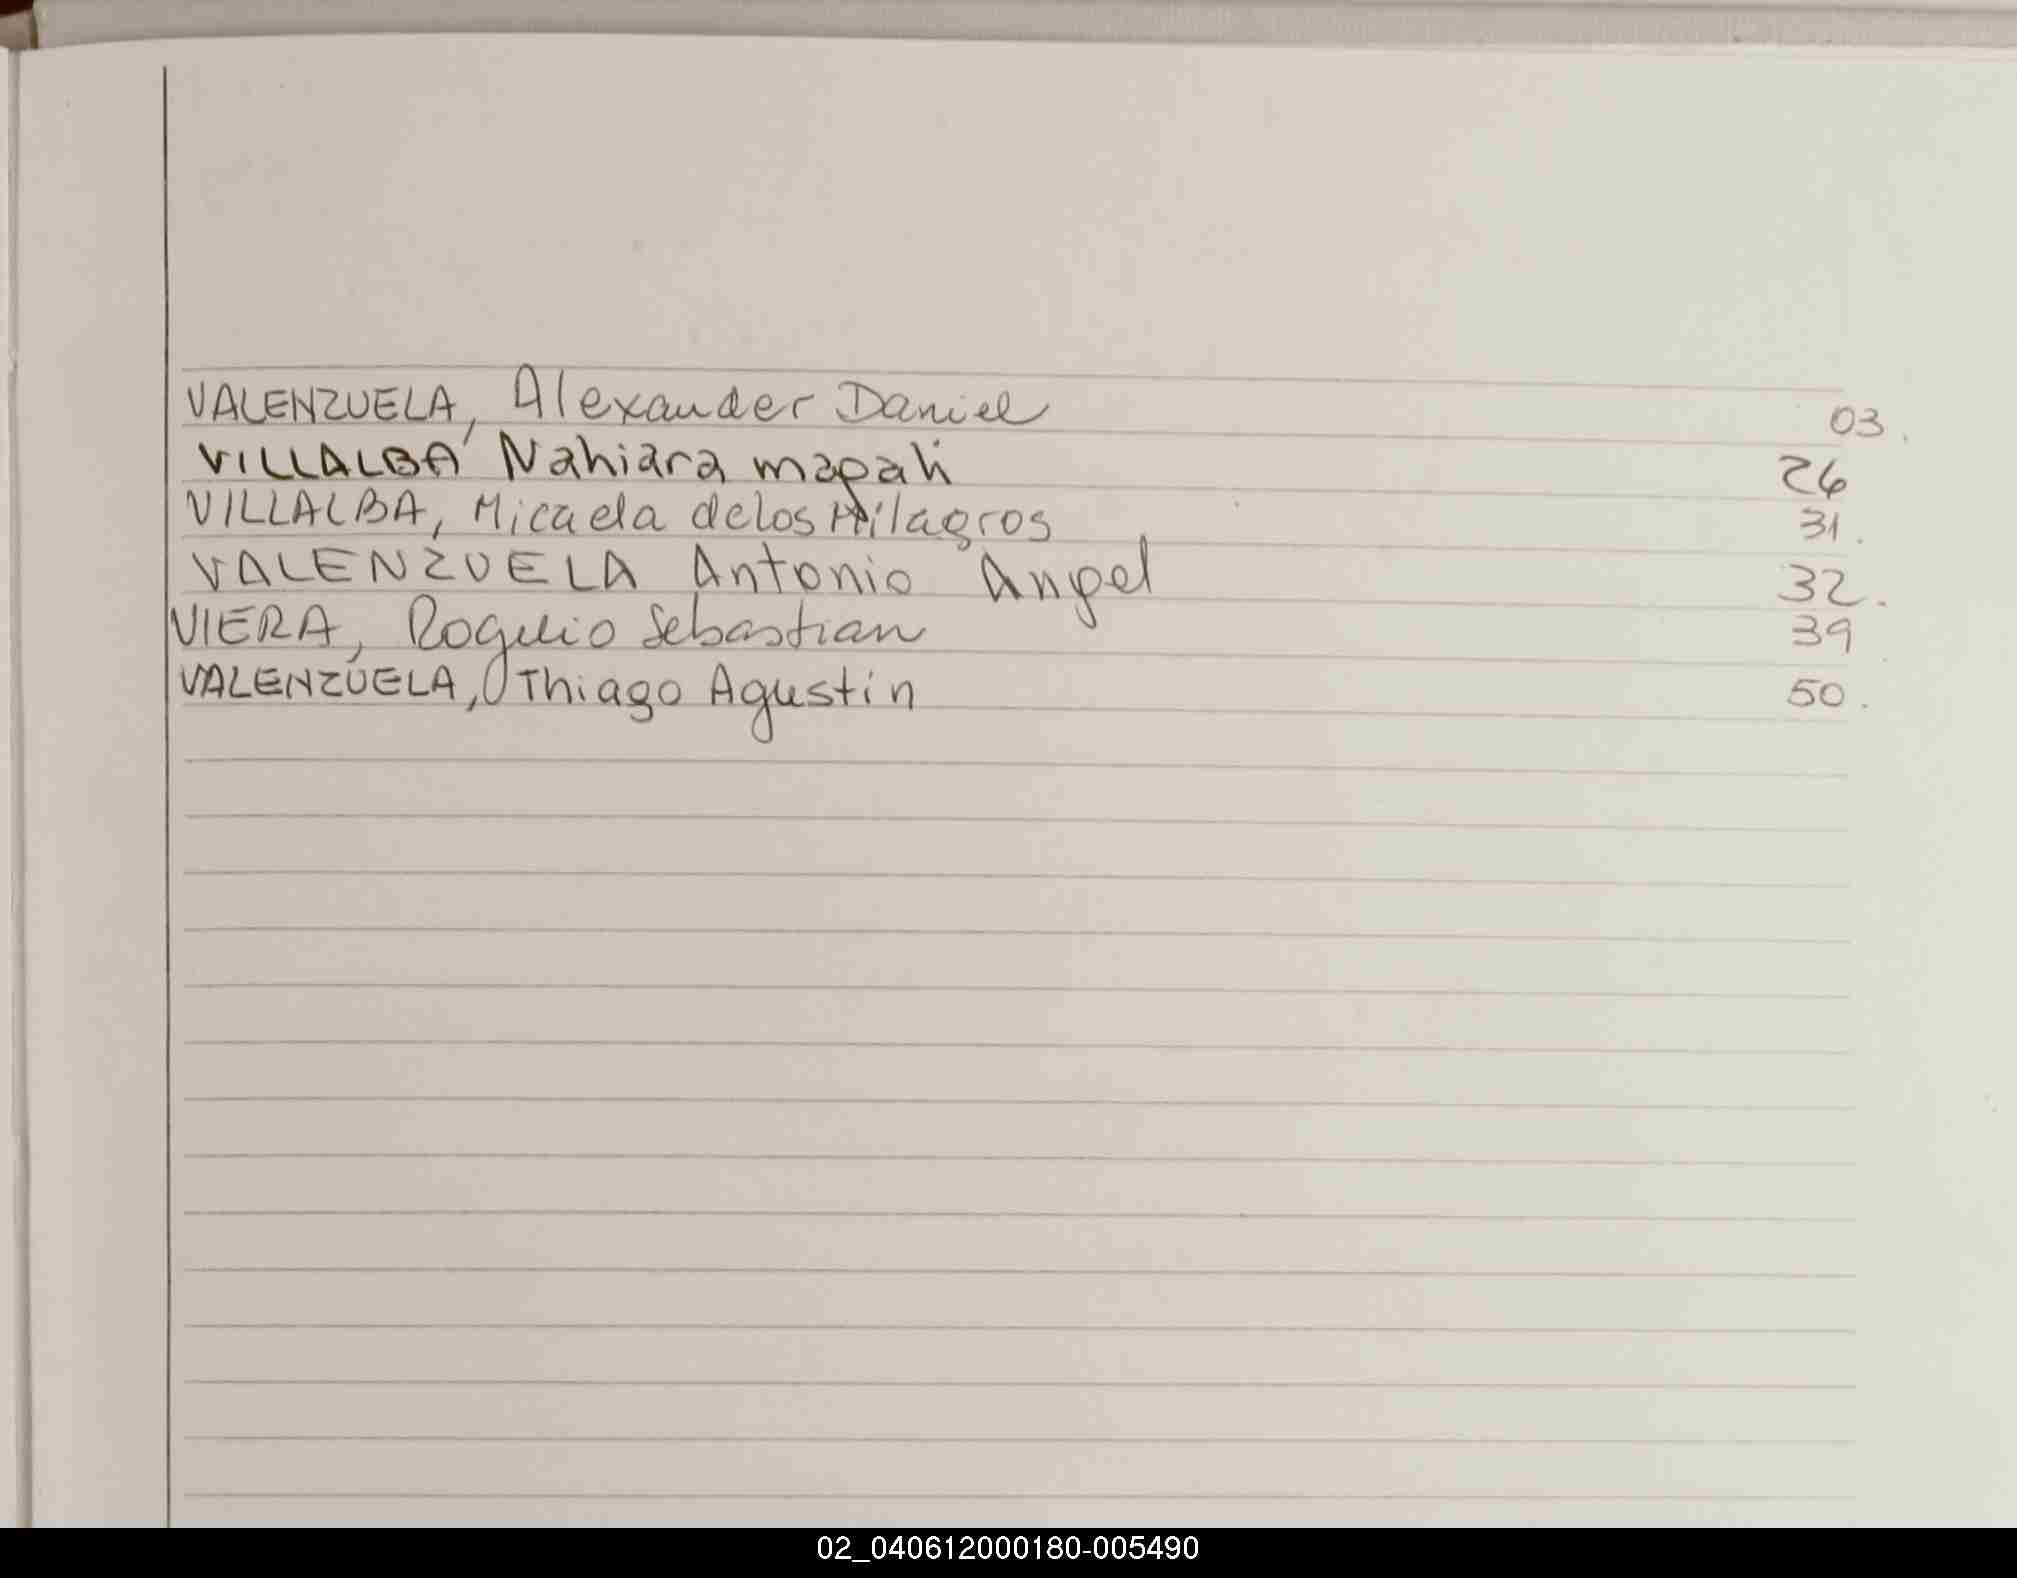 VALENZUELA, Alexander Daniel 03.
VILLALBA Nahiara magali 26
VILLALBA, Micaela delos Milagros 31.
VALENZUELA Antonio Angel 32.
VIERA, Rogelio Sebastian 39
VALENZUELA, Thiago Agustín 50.
02_040612000180-005490